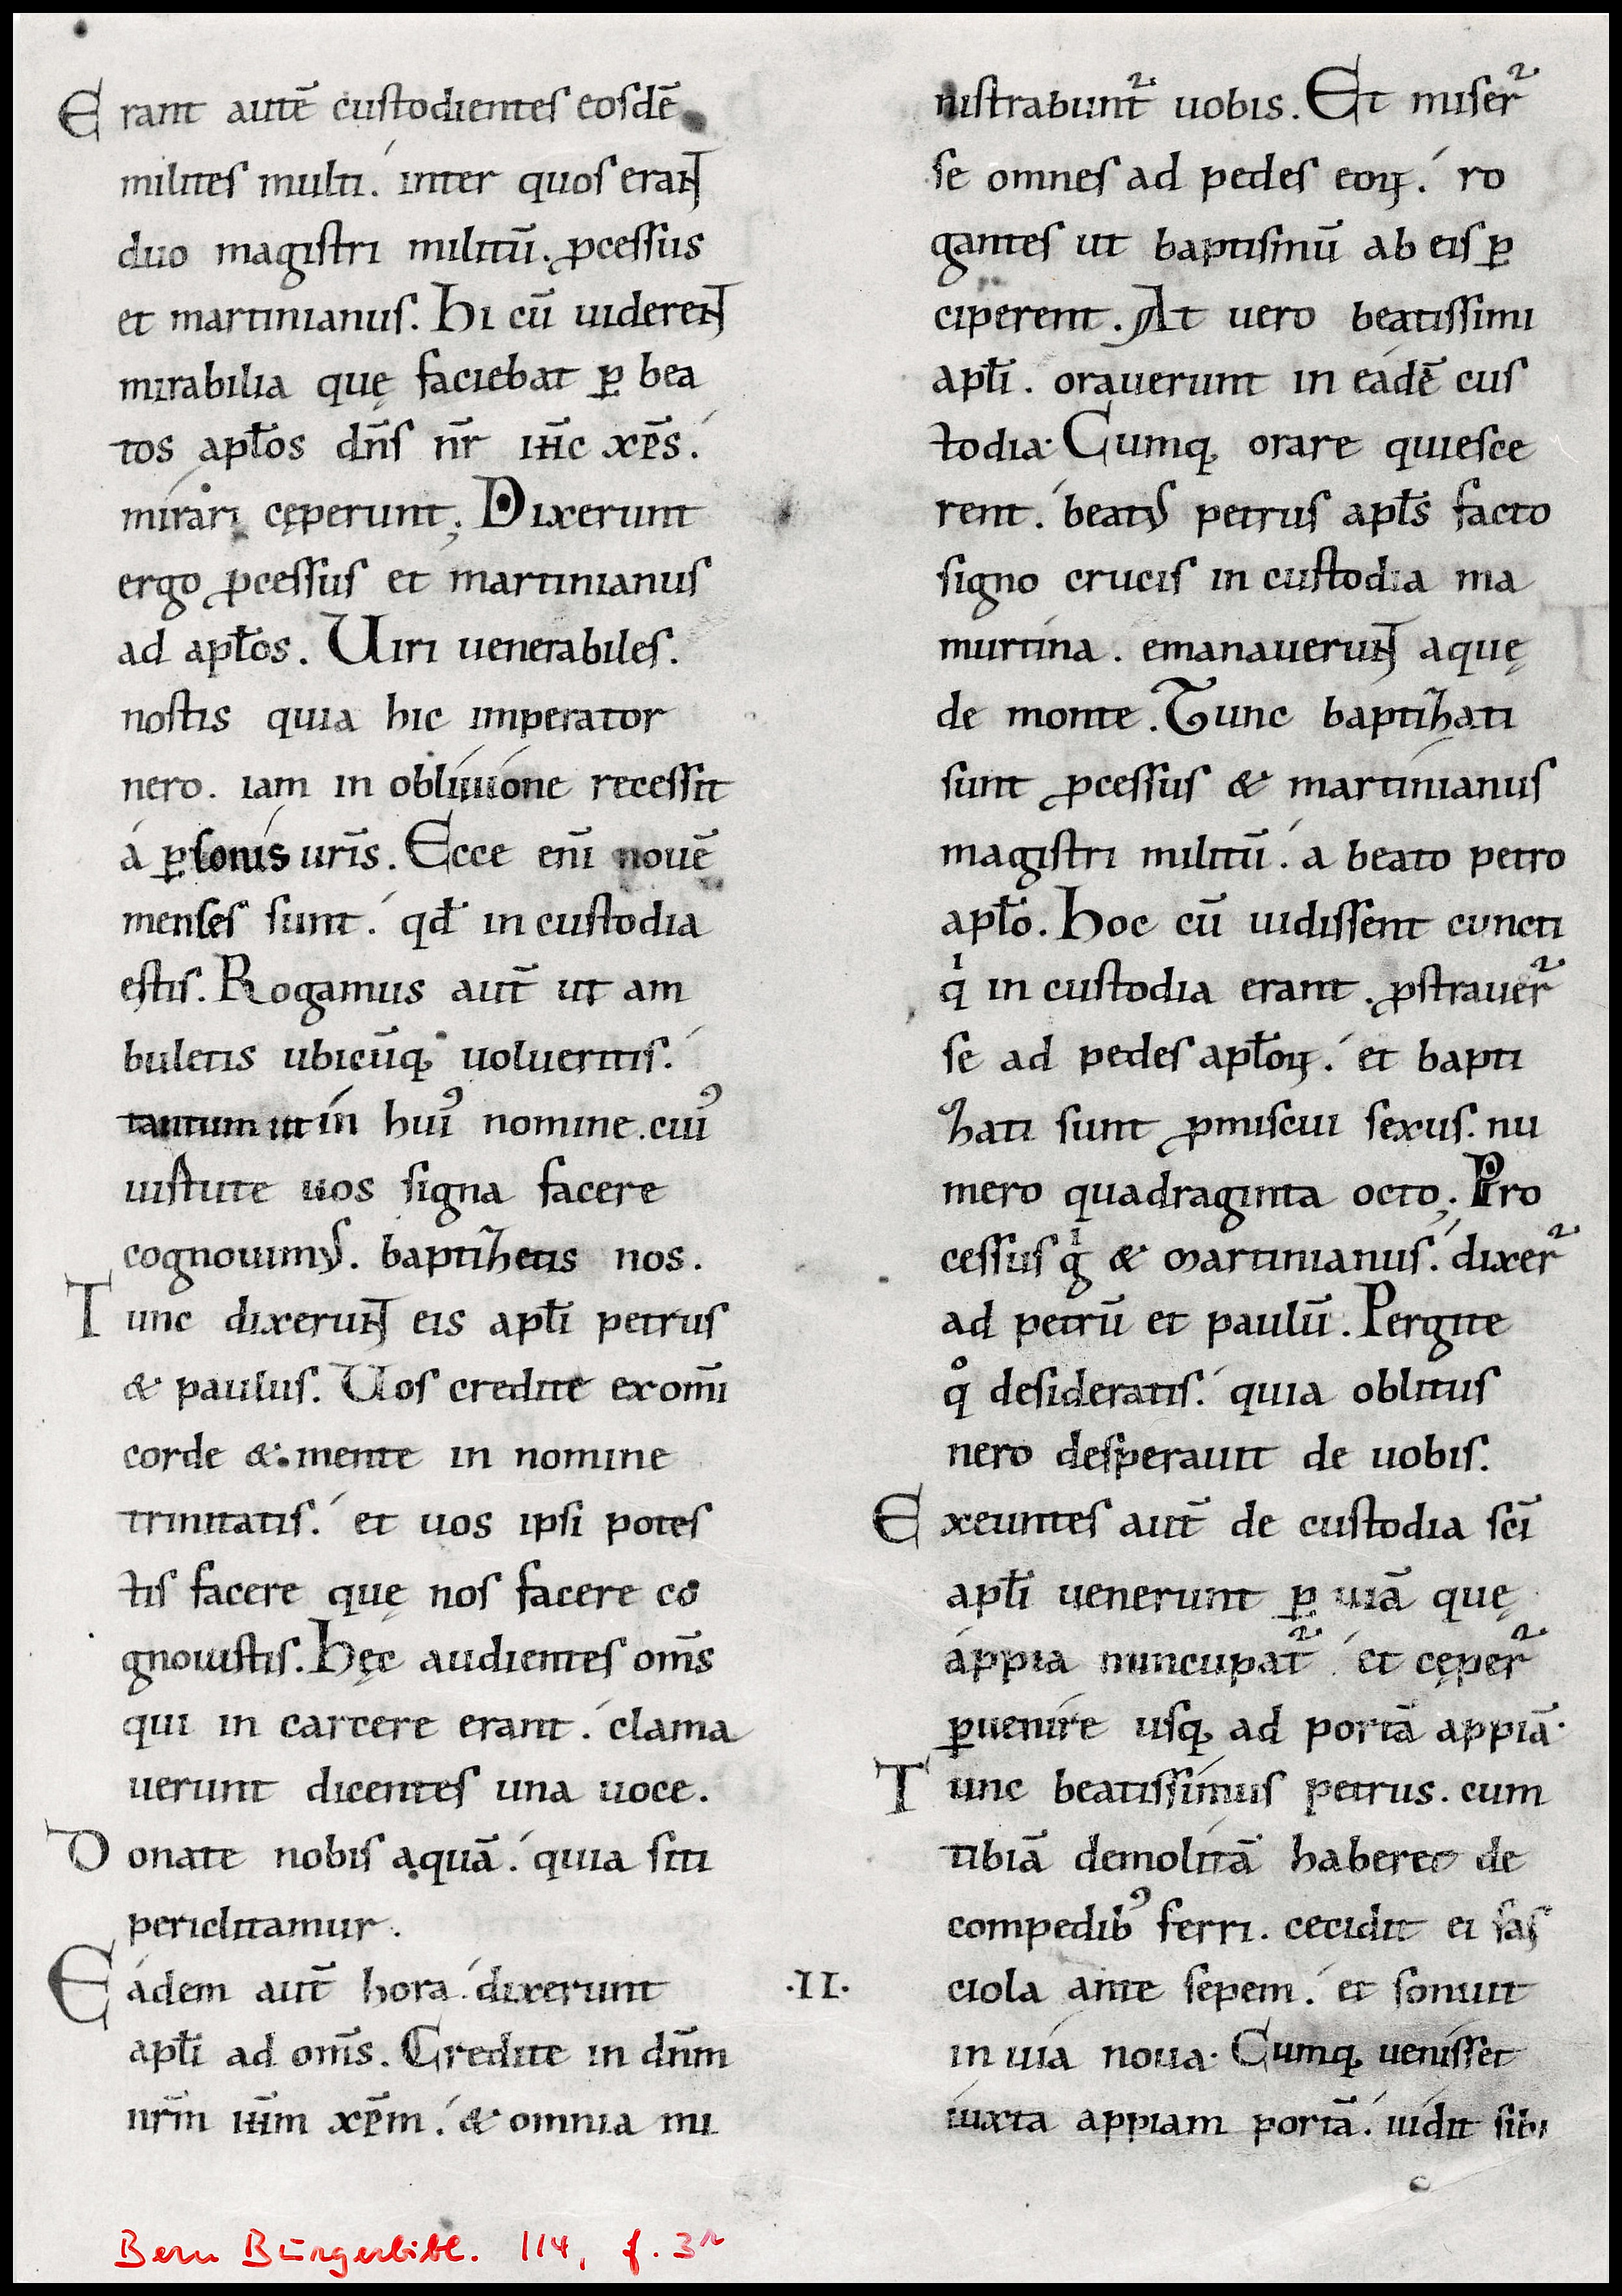 Erant autē custodientes eosdē
milites multi. inter quos erant
duo magistri militū. ꝓcessus
et martinianus. Hi cū uiderent
mirabilia quę faciebat ꝑ bea
tos apł̄os dn̄s nr̄ ıħc xp̄s.
mirari cęperunt; Dixerunt
ergo ꝓcessus et martinianus
ad apł̄os. Uiri uenerabiles.
nostis quia hic imperator
nero. iam in obliuione recessit
á ꝑsonis uris̄. Ecce eni̅ nouē
menses sunt. qđ in custodia
estis. Rogamus aut̄ ut am
buletis ubicūq; uolueritis.
tantum ut in hui᾽ nomine. cui᾽
uirtute uos signa facere
cognouimꝰ. baptizetis nos.
Tunc dixerunt eis apł̄i petrus
& paulus. Uos credite ex om̄i
corde & mente in nomine
trinitatis. et uos ipsi potes
tis facere quę nos facere co
gnouistis. Hęc audientes om̄s
qui in carcere erant. clama
uerunt dicentes una uoce.
Donate nobis aquā. quia siti
periclitamur.
Eadem aut̄ hora. dixerunt
apł̄i ad om̄s. Credite in dn̄m
nrm̄ ıħm xp̄m. & omnia mi
nistrabunt᷑ uobis. Et miser᷑
se omnes ad pedes eoꝝ. ro
gantes ut baptismū ab eis ꝑ
ciperent. At uero beatissimi
apł̄i. orauerunt in eadē cus
todia. Cumq; orare quiesce
rent. beatꝰ petrus apł̄s facto
signo crucis in custodia ma
murtina. emanauerunt aquę
de monte. Tunc baptizati
sunt ꝓcessus & martinianus
magistri militū. a beato petro
apł̄o. Hoc cū uidissent cuncti
qͥ in custodia erant. ꝓstrauer᷑
se ad pedes apł̄oꝝ. et bapti
zati sunt ꝓmiscui sexus. nu
mero quadraginta octo; Pro
cessus gͥ & martinianus. dixer᷑
ad petrū et paulū. Pergite
qͦ desideratis. quia oblitus
nero desperauit de uobis.
Exeuntes aut̄ de custodia sc̄i
apł̄i uenerunt ꝑ uiā quę
appia nuncupat᷑. et cęper᷑
ꝑuenire usq; ad portā appiā.
Tunc beatissimus petrus. cum
tibiā demolitā haberet de
compedib᾽ ferri. cecidit ei fas
.II. ciola ante sepem. et sonuit
in uia noua. Cumq; uenisset
iuxta appiam portā. uidit sibi
Bern Burgerbibl. 114, f. 3r